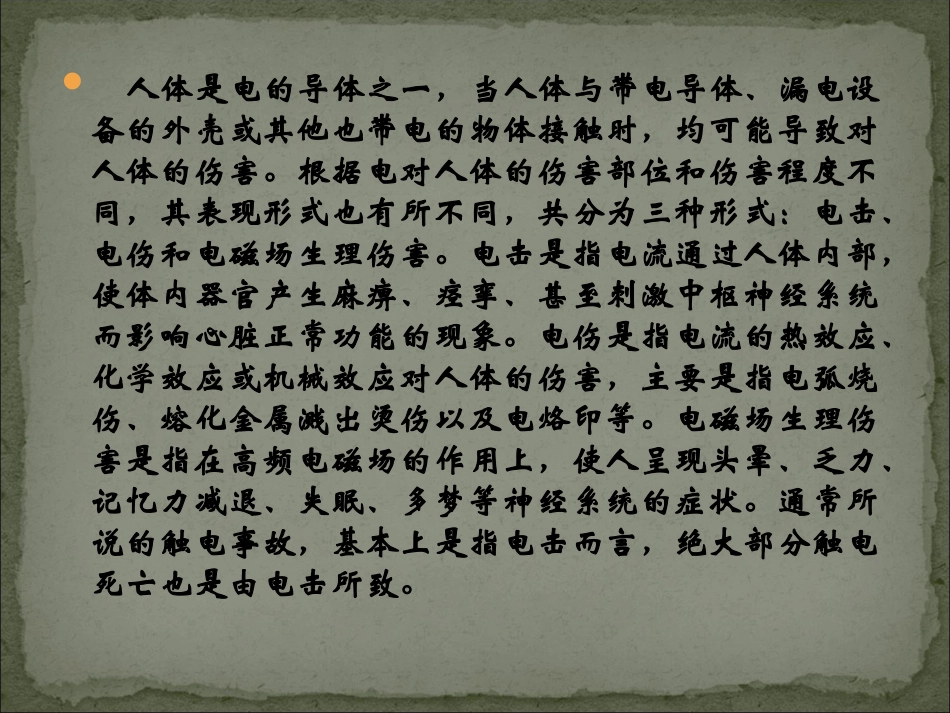 人体是电的导体之一，当人体与带电导体、漏电设
备的外壳或其他也带电的物体接触时，均可能导致对
人体的伤害。根据电对人体的伤害部位和伤害程度不
同，其表现形式也有所不同，共分为三种形式：电击、
电伤和电磁场生理伤害。电击是指电流通过人体内部，
使体内器官产生麻痹、痉挛、甚至刺激中枢神经系统
而影响心脏正常功能的现象。电伤是指电流的热效应、
化学效应或机械效应对人体的伤害，主要是指电弧烧
伤、熔化金属溅出烫伤以及电烙印等。电磁场生理伤
害是指在高频电磁场的作用上，使人呈现头晕、乏力、
记忆力减退、失眠、多梦等神经系统的症状。通常所
说的触电事故，基本上是指电击而言，绝大部分触电
死亡也是由电击所致。